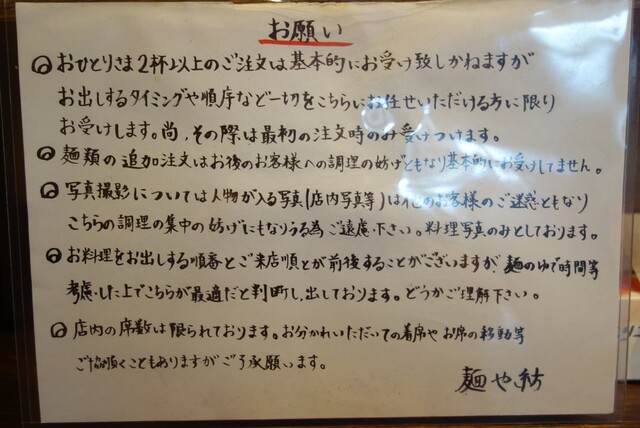 お願い
おひとりさま2杯以上のご注文は基本的にお受け致しかねますが
お出しするタイミングや順序など一切をこちらにお任せいただける方に限り
お受けします。尚、その際は最初の注文時のみ受けつけます。
麺類の追加注文はお後のお客様への調理の妨げともなり基本的にお受けしてません。
写真撮影については人物が入る写真(店内写真等)は他のお客様のご迷惑ともなり
こちらの調理の集中の妨げにもなりうる為ご遠慮下さい。料理写真のみとしております。
お料理をお出しする順番とご来店順とが前後することがございますが、麺のゆで時間等
考慮した上でこちらが最適だと判断し、出しております。どうかご理解下さい。
店内の席数は限られております。お分かれいただいての着席やお席の移動等
ご協願うこともありますがご了承願います。
麺や紡